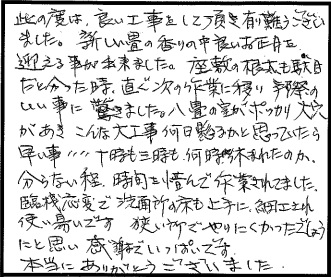 此の度は、良い工事をして頂き有難うござい
ました。新しい畳の香りの中良いお正月を
迎える事が出来ました。座敷の根太も駄目
だと分った時、直ぐ次の作業に移り手際の
いい事に驚きました。八畳の室がポッカリ大穴
があき こんな大工事何日懸るかと思っていたら
早い事‥‥十時も三時も何時休まれたのか、
分らない程、時間を惜んで作業されてました。
臨機応変で洗面所の床も上手に、細工され
使い易いです 狭い所でやりにくかったでしょう
にと思い 感謝でいっぱいです。
本当にありがとうございました。